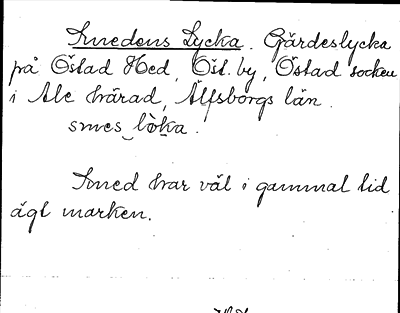 Smedens Lycka. Gärdeslycka
på Östad Hed, Öst. by, Östad socken
i Ale härad, Älfsborgs län.
smes lòka.
Smed har väl i gammal tid
ägt marken.